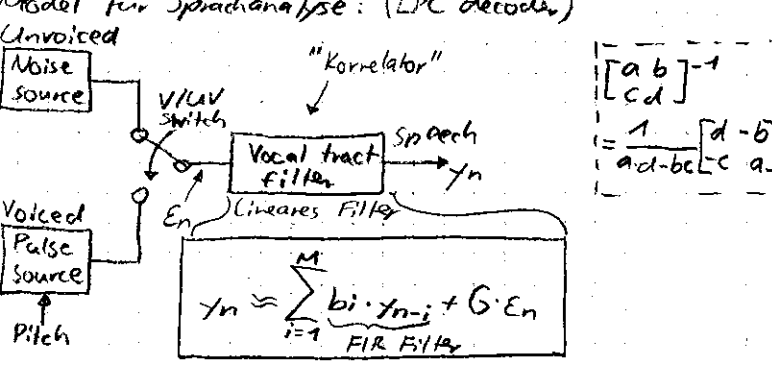 Model für Sprachanalyse: (LPC decoder)
Unvoiced
Noise
source
V/UV
switch
"Korrelator"
Vocal tract
filter
Speech
yn
εn
Lineares Filter
Voiced
Pulse
source
Pitch
yn ≈ M ∑ i=1 bi · yn-i + G · εn
FIR Filter
[a b
c d]^-1
= 1/(a·d-bc) [d -b
-c a